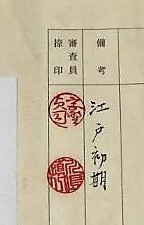 備考
江戸初期
審査員
捺印